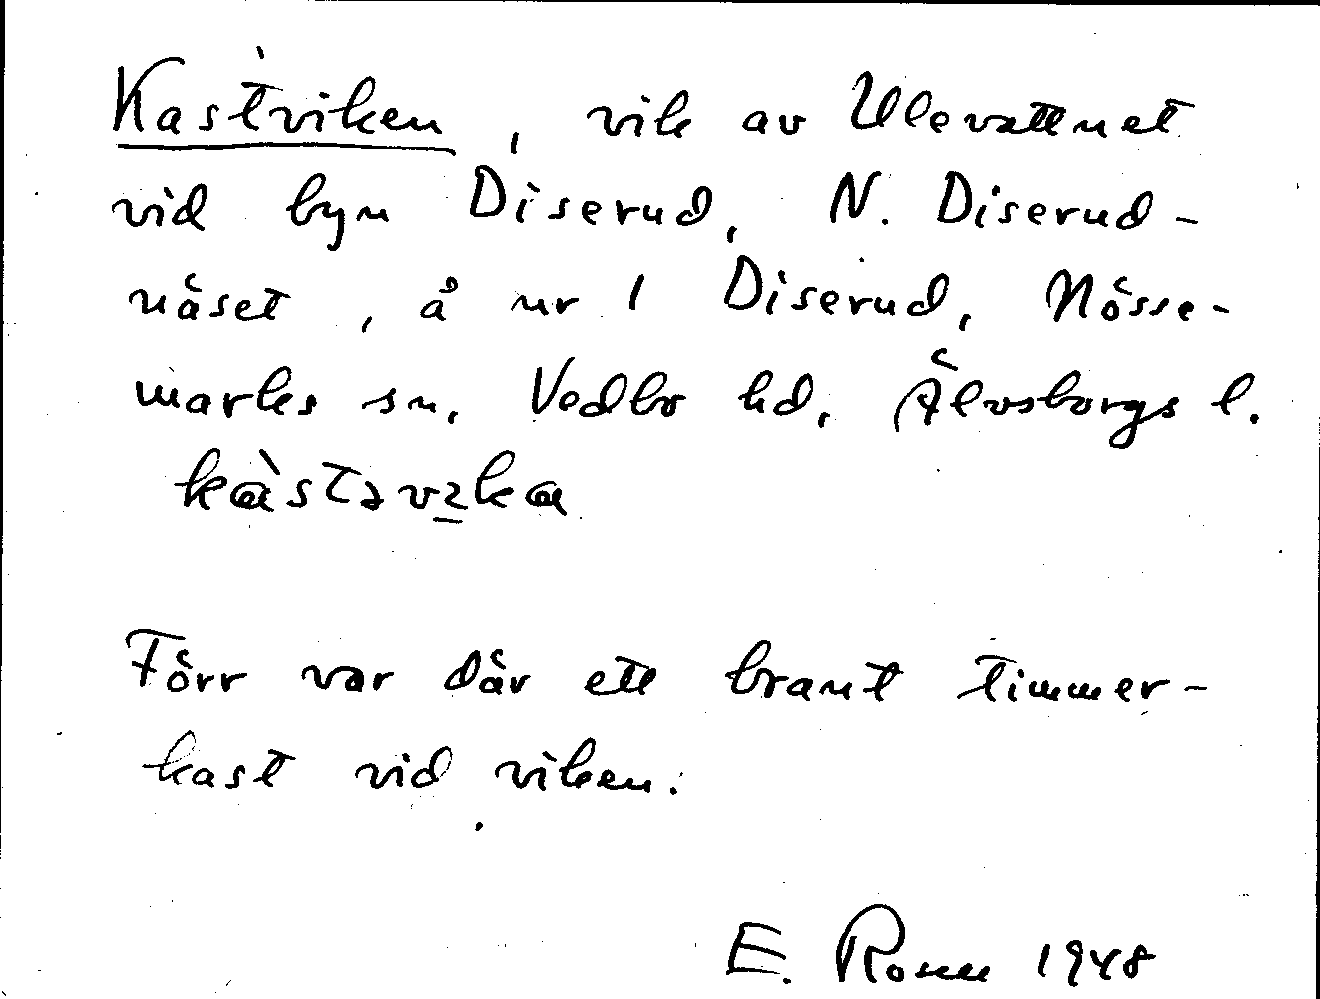 Kastviken, vik av Ulevattnet
vid byn Diserud, N. Diserud-
näset, å nr 1 Diserud, Nösse-
marks sn, Vedbo hd, Älvsborgs l.
kàstəvika
Förr var där ett brant timmer-
kast vid viken.
E. Rosell 1948